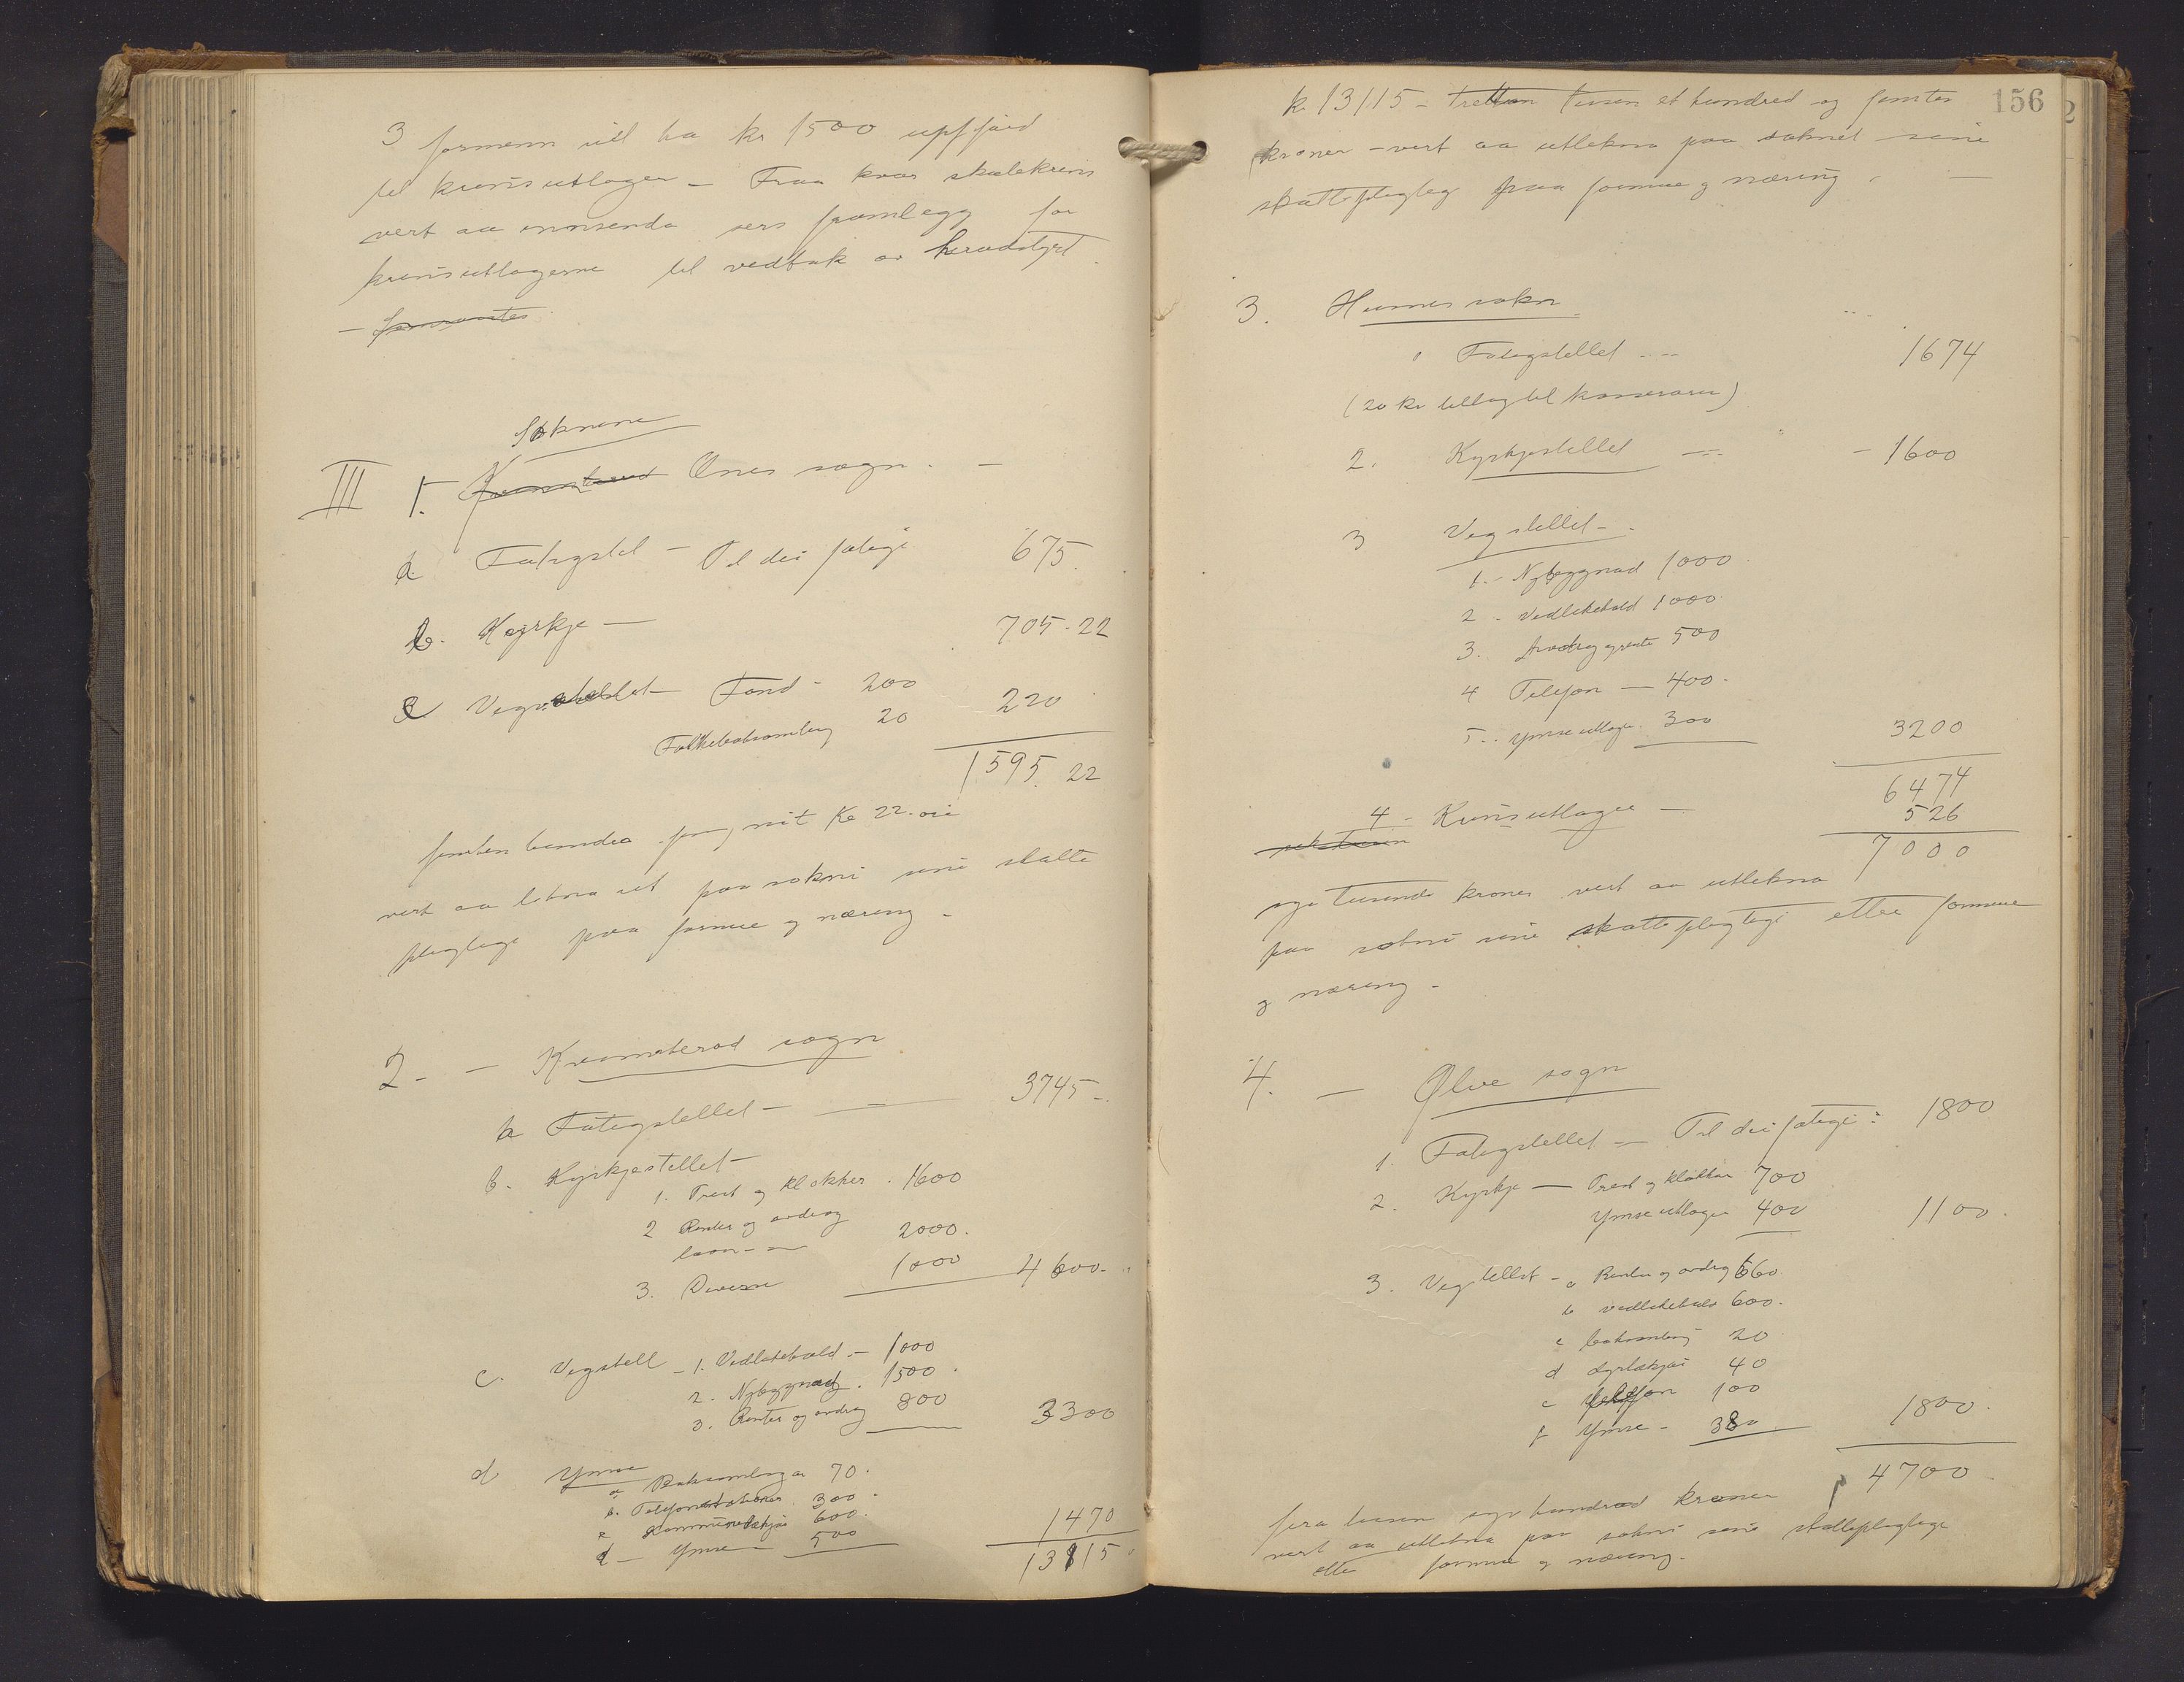 3 formenn vil ha kr 1500 uppförd
til krinsutlogor – Fraa kvar skulekrins
vert aa innsenda sers framlegg for
krinsutlogerne til vedtak av heradstyret
–
Soknene
III 1. Ænes sogn. –
a Fatigstel – Til dei fatige 675.
b. Kyrkje – 705.22
c Vegstellet Fond – 200
Folkeboksamling 20 220
1595.22
femten hundra og nitti fem Kr 22 øre
vert aa likna ut paa sokni sine skatte
plagtige paa formue og næring –
2 – – Kvamsherad sogn
a Fatigstellet – – 3745 –
b. Kyrkjestellet –
1. Prest og klokker. 1600
2 Renter og avdrag
laan – 2000.
3. Diverse 1000 4600.
c. Vegstell – 1. Vedlikehald – 1000
2. Nybyggnad. 1500.
3. Renter og avdrag 800 3300
d Ymse
a Boksamlingar 70.
b. Telefonstationer 300.
c Kommunelækjar 600.
d – Ymse – 500 1470
13115
156
kr 13115 – tretten tusen et hundred og femten
kroner – vert aa utlikna paa soknet sine
skatteplagtige paa formue og næring. –
3. Husnes sokn
1 Fatigstellet 1674
(20 kr tillag til kasseraren)
2. Kyrkjestellet – 1600
3 Vegstellet –
1. – Nybyggnad 1000
2 – Vedlikehald 1000
3. Avdrag og rente 500
4 Telefon – 400 –
5 – Ymse utlogor 300 3200
6474
4 – Krinsutlogor – 526
7000
syv tusende kroner vert aa utlikna
paa sokni sine skatteplagtige etter formue
og næring –
4. – Ølve sogn
1. Fatigstellet – Til dei fatige: 1800
2. Kyrkje – Prest og klokkar 700
Ymse utlogor 400 1100.
3. Vegstellet – a Renter og avdrag 660
b vedlikehald 600.
c boksamling 20
d dyrlækjar 40
e telefon 100
f Ymse – 380 1800.
4700
fira tusen syv hundrad kroner
vert aa utlikna paa sokni sine skatteplagtige
etter formue og næring.